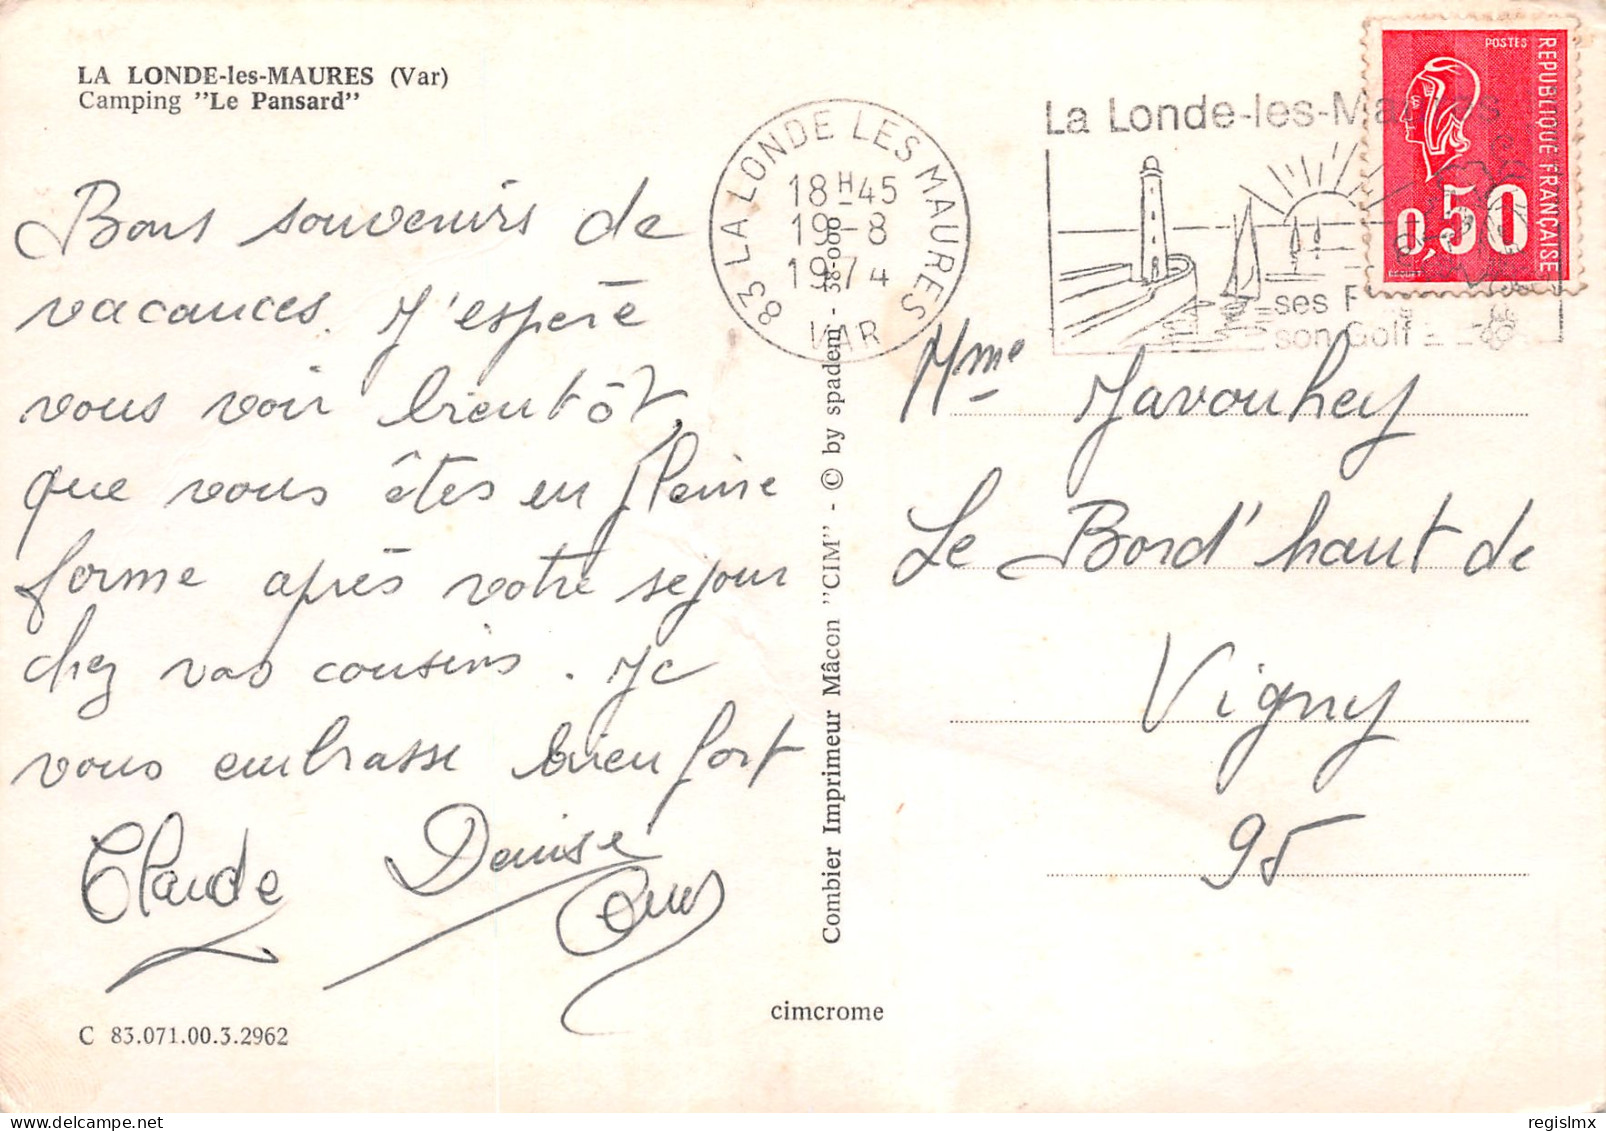 LA LONDE-les-MAURES (Var)
Camping "Le Pansard"
Bons souvenirs de
vacances. J'espère
vous voir bientôt,
que vous êtes en pleine
forme après votre sejour
chez vos cousins. Je
vous embrasse bien fort
Claude Denise
C 83.071.00.3.2962
83 LA LONDE LES MAURES
18H45
19-8
1974
VAR
Combier Imprimeur Mâcon "CIM" - © by spadem - 38-000
cimcrome
La Londe-les-Ma
ses P
son Golf
POSTES
REPUBLIQUE FRANÇAISE
0,50
Mme Javouhey
Le Bord'haut de
Vigny
95
regislmx